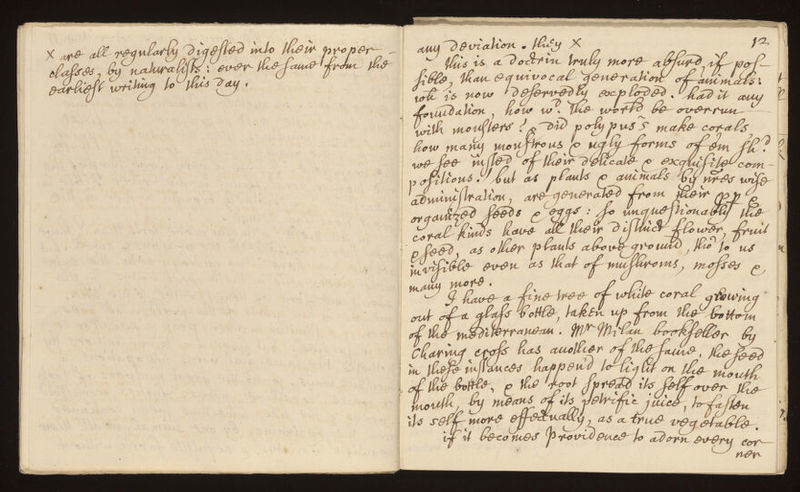 X are all regularly digested into their proper
classes, by naturalists: ever the same from the
earliest writing to this day.
12
any deviation. they X
this is a doctrin truly more absurd, if pos-
sible, than equivocal generation of animals:
wch is now deservedly exploded. had it any
foundation, how wd. the world be overrun
with monsters? did polypus's make corals,
how many monstrous & ugly forms of em shd.
we see insted of their delicate & exquisite com-
positions. but as plants & animals by nres wise
administration, are generated from their pp &
organized seeds & eggs: so unquestionably the
coral kinds have all their distinct flower, fruit
& seed, as other plants above ground, tho' to us
invisible even as that of mushroms, mosses &
many more.
I have a fine tree of white coral growing
out of a glass bottle, taken up from the bottom
of the mediterranean. Mr Milan bookseller by
Charing cross has another of the same, the seed
in these instances happen'd to light on the mouth
of the bottle, & the root spread its self over the
mouth, by means of its petrific juice, to fasten
its self more effectually, as a true vegetable.
if it becomes Providence to adorn every cor-
ner